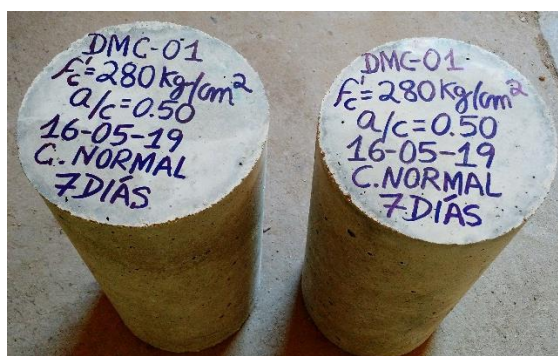 DMC-01
f'c=280kg/cm²
a/c=0.50
16-05-19
C. NORMAL
7 DÍAS
DMC-01
f'c=280kg/cm²
a/c=0.50
16-05-19
C. NORMAL
7 DÍAS